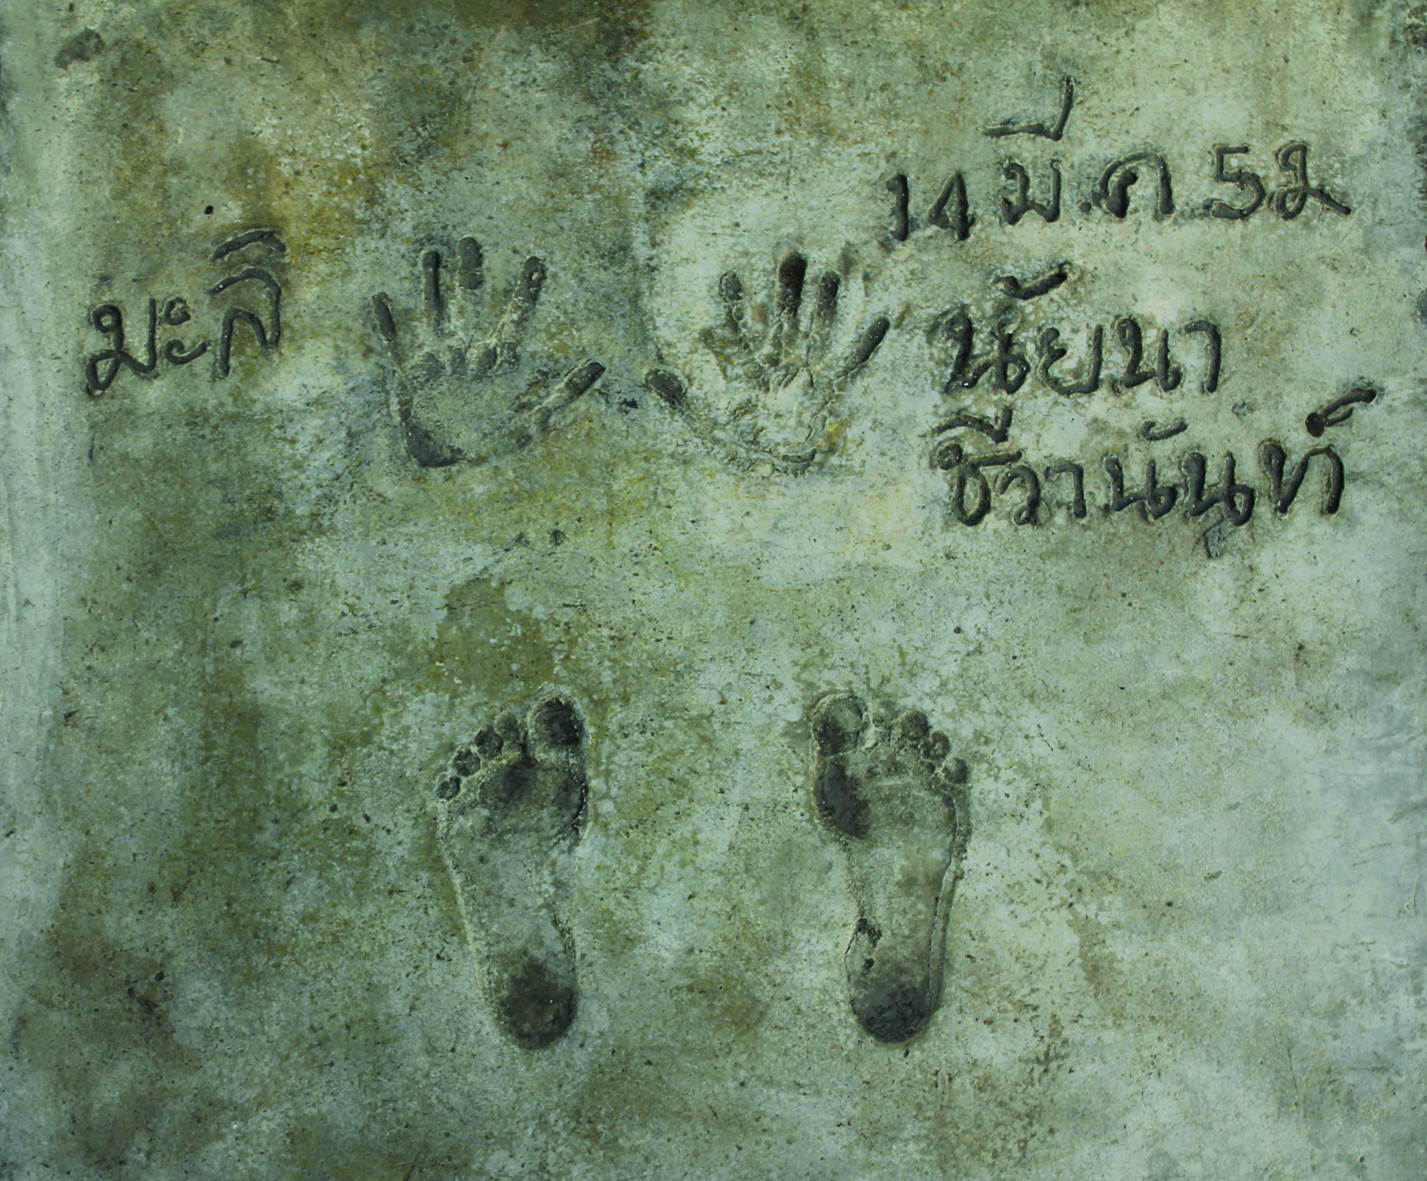 14 มี.ค 52
มะลิ
นัยนา
ชีวานันท์